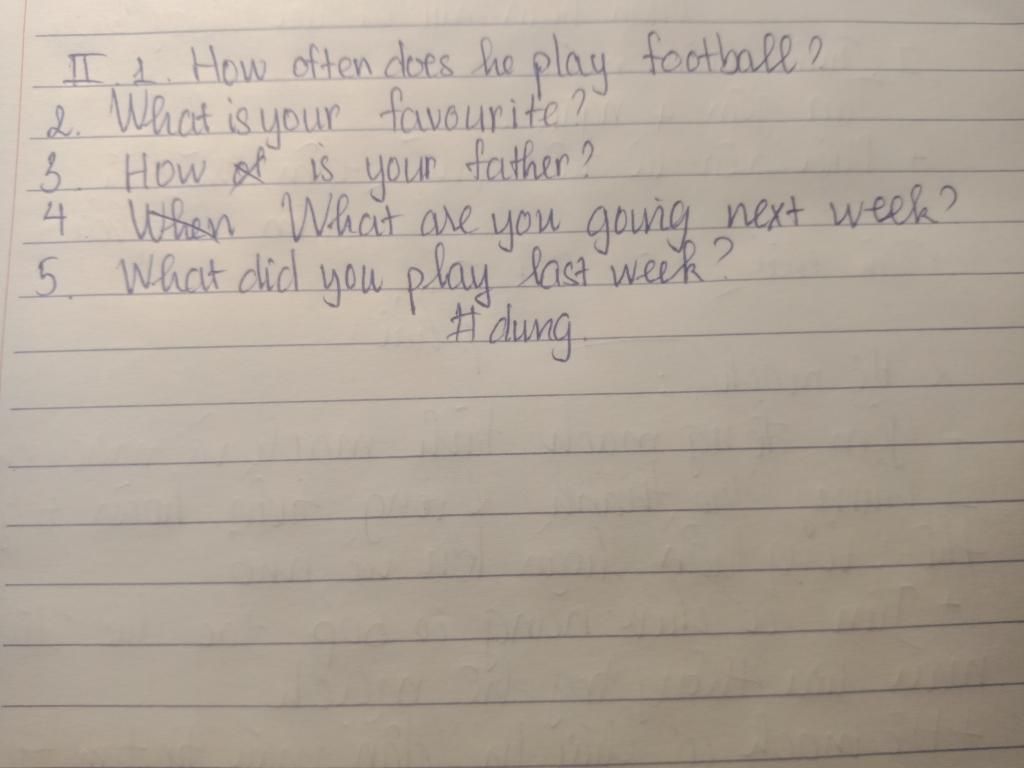 II 1. How often does he play football?
2. What is your favourite?
3. How is your father?
4 When What are you going next week?
5. What did you play last week?
#dung